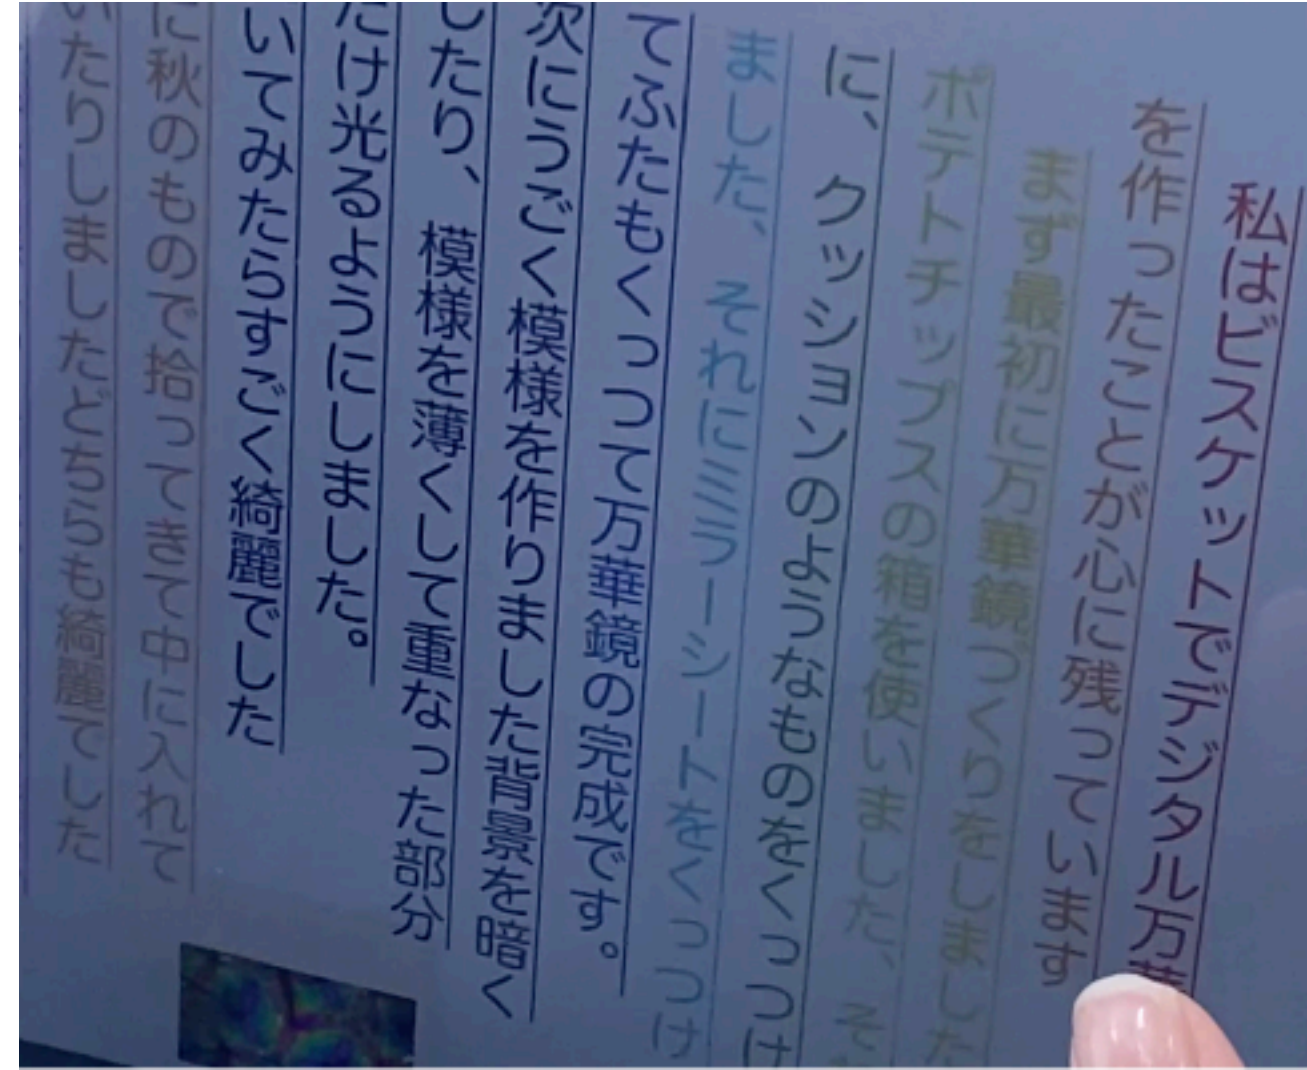 私はビスケットでデジタル万華
を作ったことが心に残っています
まず最初に万華鏡づくりをしました
ポテトチップスの箱を使いました、そ
に、クッションのようなものをくっつけ
ました、それにミラーシートをくっつけ
てふたもくっつて万華鏡の完成です。
次にうごく模様を作りました背景を暗く
したり、模様を薄くして重なった部分
だけ光るようにしました。
いてみたらすごく綺麗でした
に秋のもので拾ってきて中に入れて
いたりしましたどちらも綺麗でした